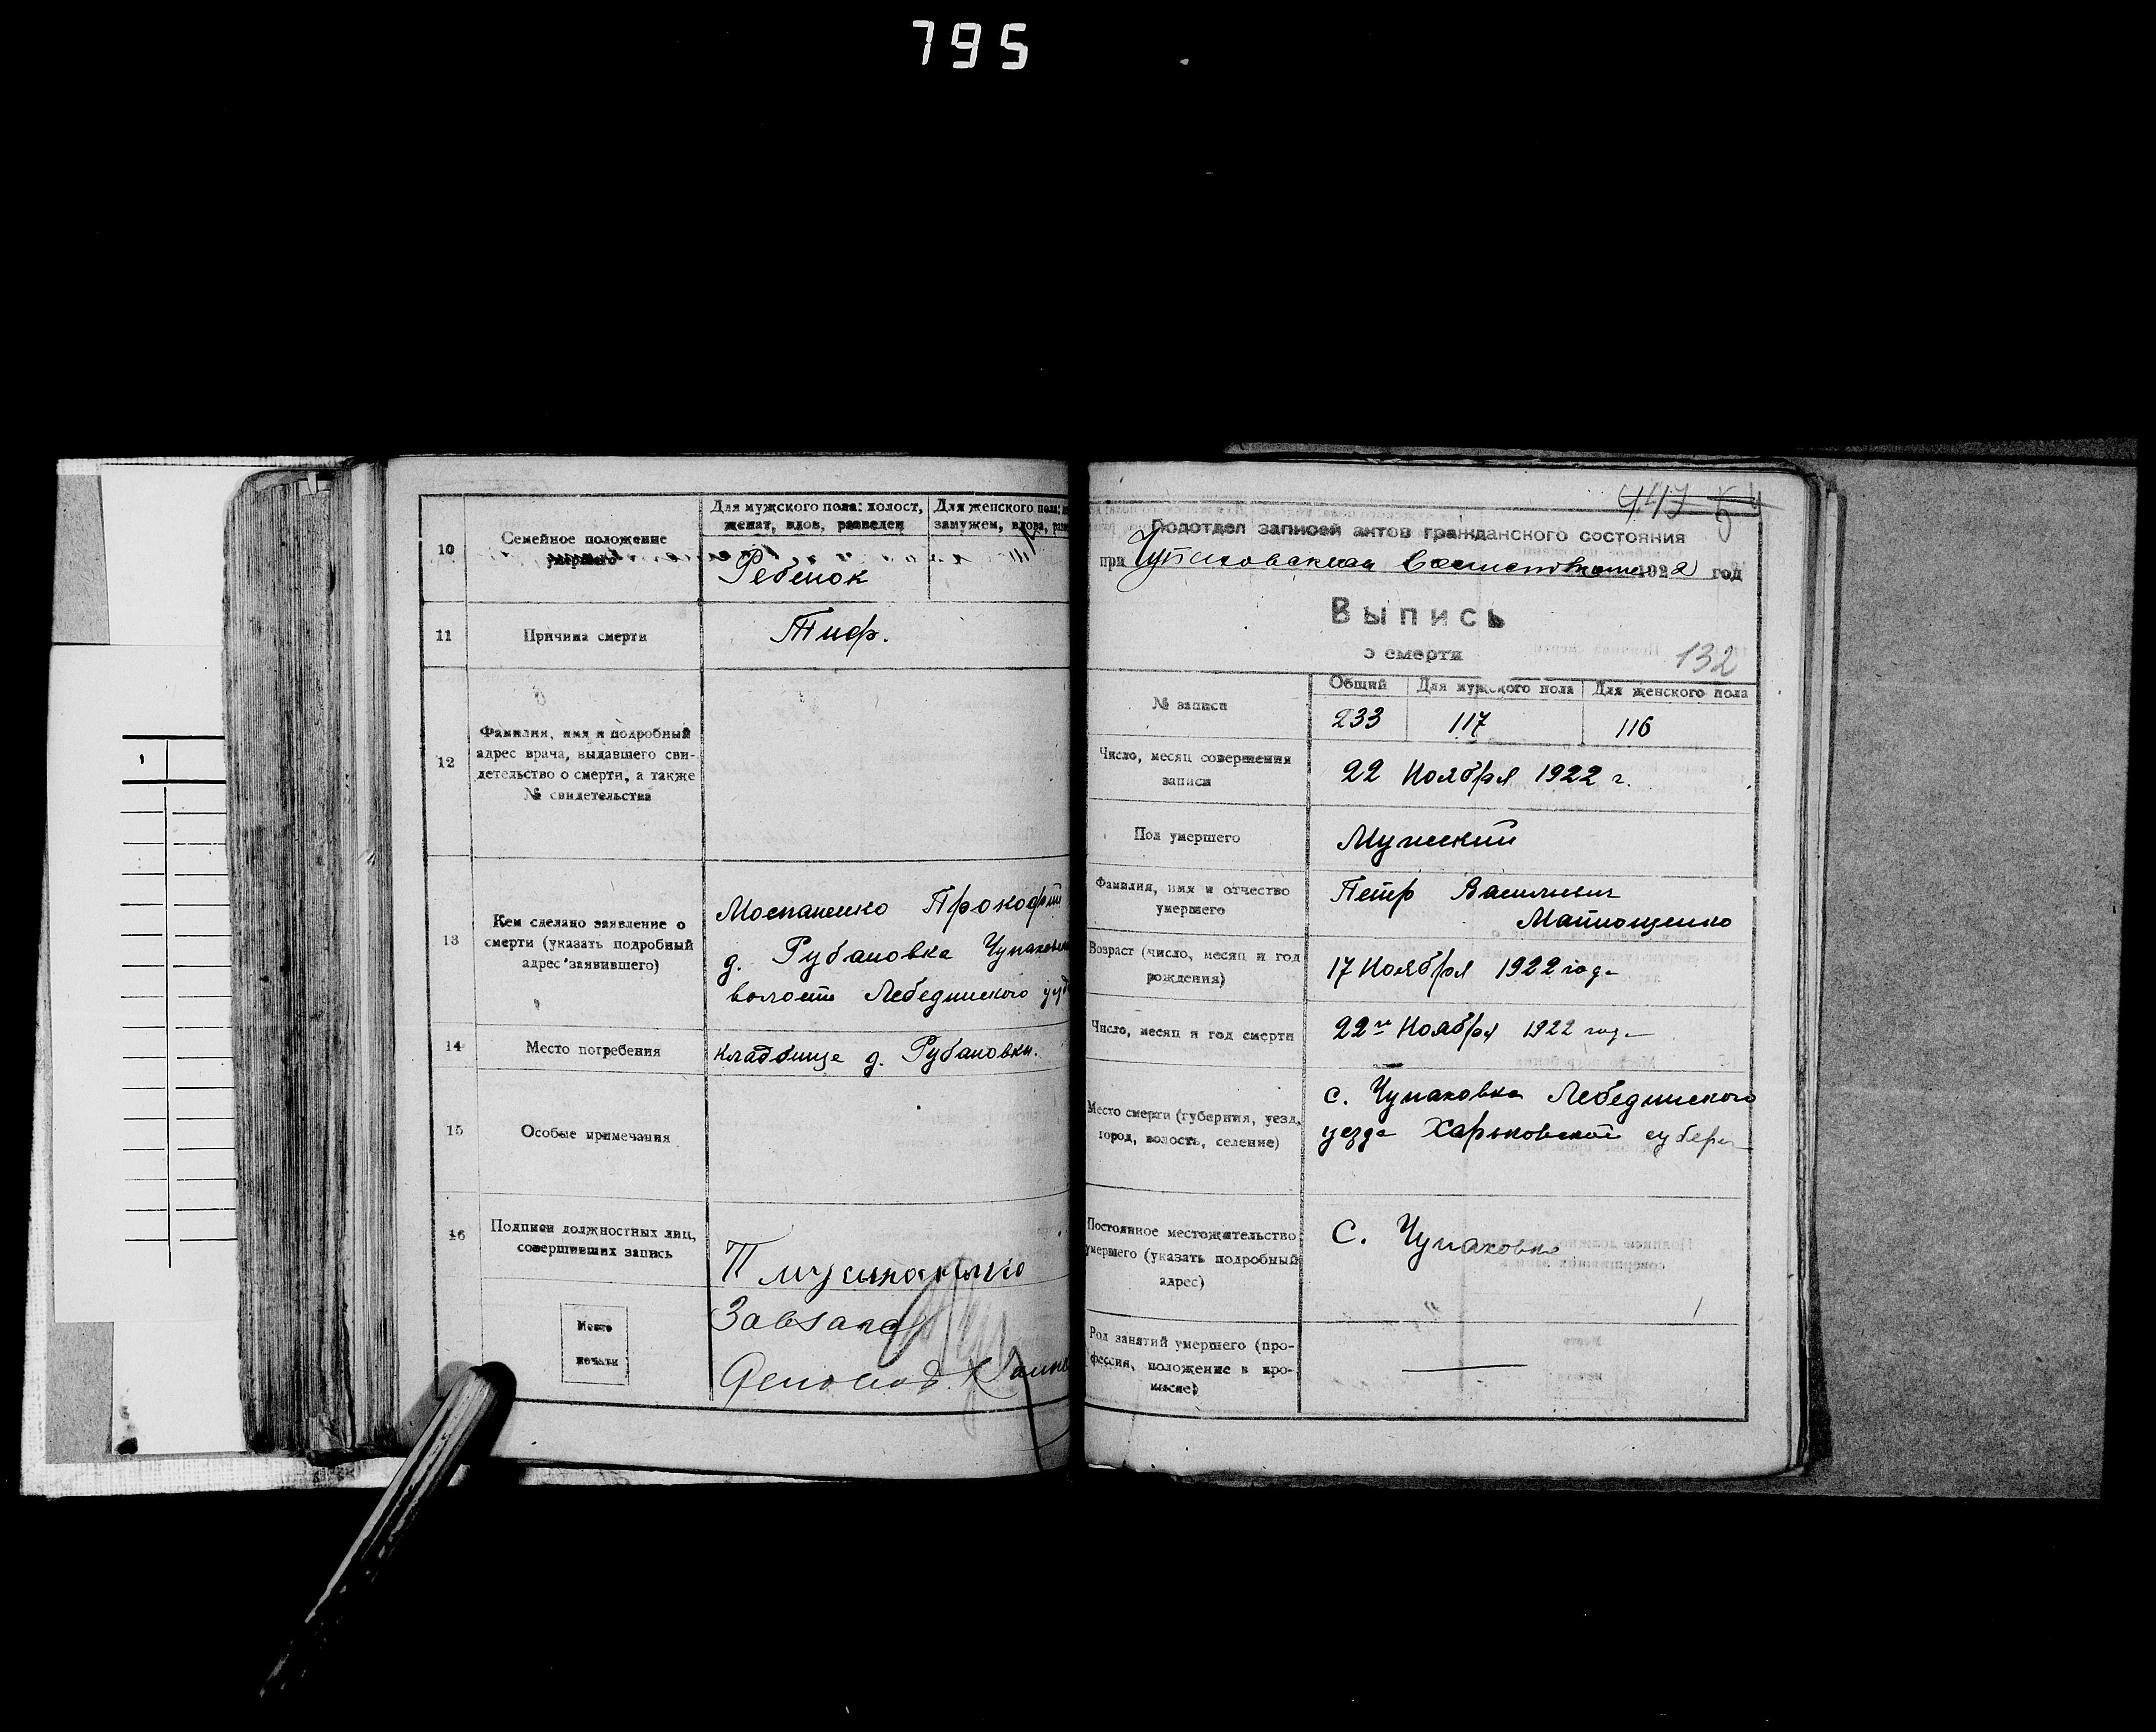 795
10
Семейное положение
умершего
Для мужского пола: холост,
женат, вдов, разведен
Для женского пола:
замужем, вдова,
Ребенок
11
Причина смерти
Тиф.
12
Фамилия, имя и подробный
адрес врача, выдавшего сви-
детельство о смерти, а также
№ свидетельства
13
Кем сделано заявление о
смерти (указать подробный
адрес заявившего)
Моспаненко Прокофий
д. Рубановка
волости Лебединского
14
Место погребения
кладбище д. Рубановки.
15
Особые примечания
16
Подписи должностных лиц,
совершивших запись
П
Место
печати
1
447
Подотдел записей актов гражданского состояния
при 1922 год
Выпись
о смерти
132
№ записи
Общий
Для мужского пола
Для женского пола
233
117
116
Число, месяц совершения
записи
22 Ноября 1922 г.
Пол умершего
Мужский
Фамилия, имя и отчество
умершего
Петр Васильевич
Матющенко
Возраст (число, месяц и год
рождения)
17 Ноября 1922 года
Число, месяц и год смерти
22го Ноября 1922 года
Место смерти (губерния, уезд,
город, волость, селение)
с. Чупаховка Лебединского
уезда Харьковской губерн
Постоянное местожительство
умершего (указать подробный
адрес)
С. Чупаховка
Род занятий умершего (про-
фессия, положение в про-
мысле)